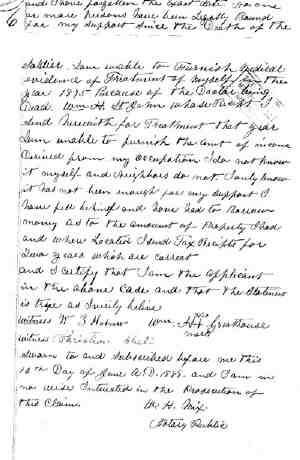 and I have forgotten the exact date. No one
or more persons have been Legally Bound
6 for my support since the Death of the
soldier. I am unable to Furnish medical
evidence of Treatment of myself for the
year 1875 Because of the Doctor being
Dead. Wm H. St John whose Receipt I
send herewith for Treatment that year
I am unable to furnish the amt of income
Derived from my occupation I do not know
it myself and Neighbors do not I only know
it has not been enough for my support I
have fell behind and have had to Borrow
money as to the amount of Property I had
and where Located I send Tax Receipts for
Two years which are correct
and I certify that I am the applicant
in the above Case and that the Statement
is true as I verily believe
witness W. S. Holmes Wm. H his Greathouse
mark
witness Christian
Sworn to and Subscribed before me this
10th Day of June A.D. 1889. and I am in
no wise Interested in the Prosecution of
this Claim. W. H. Mix
Notary Public